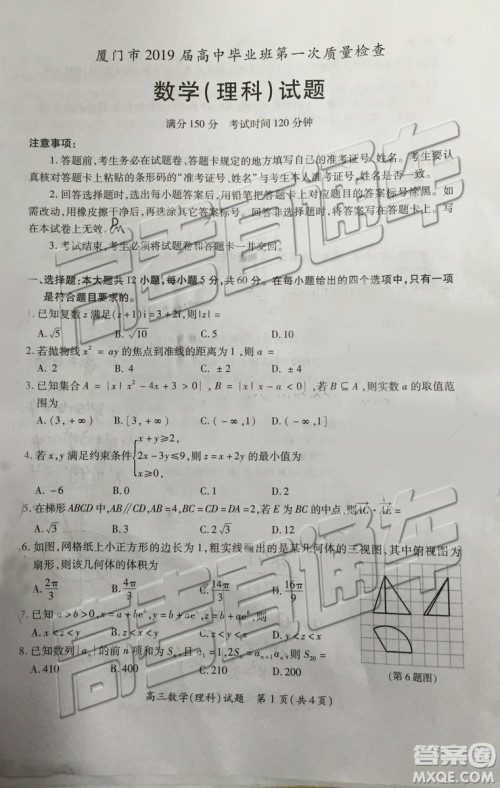 厦门市2019届高中毕业班第一次质量检查
数学(理科)试题
满分150分 考试时间120分钟
注意事项:
1.答题前,考生务必在试题卷、答题卡规定的地方填写自己的准考证号、姓名。考生要认真核对答题卡上粘贴的条形码的“准考证号、姓名”与考生本人准考证号、姓名是否一致。
2.回答选择题时,选出每小题答案后,用铅笔把答题卡上对应题目的答案标号涂黑。如需改动,用橡皮擦干净后,再选涂其它答案标号。回答非选择题时,将答案写在答题卡上。写在本试卷上无效。
3.考试结束,考生必须将试题卷和答题卡一并交回。
一、选择题:本大题共12小题,每小题5分,共60分。在每小题给出的四个选项中,只有一项是符合题目要求的。
1.已知复数z满足(z+1)i=3+2i,则|z|=
A.√5 B.√10 C.5 D.10
2.若抛物线x²=ay的焦点到准线的距离为1,则a=
A.2 B.4 C.±2 D.±4
3.已知集合A={x|x²-4x+3>0},B={x|x-a<0},若B⊆A,则实数a的取值范围为
A.(3,+∞) B.[3,+∞) C.(-∞,1) D.(-∞,1]
4.若x,y满足约束条件{x+y≥2, 2x-3y≤9, x≥0,则z=x+2y的最小值为
A.-6 B.0 C.1 D.2
5.在梯形ABCD中,AB∥CD,AB=4,BC=CD=DA=2,若E为BC的中点,则AC·AE=
A.2√3 B.4√3 C.9 D.12
6.如图,网格纸上小正方形的边长为1,粗实线画出的是某几何体的三视图,其中俯视图为扇形,则该几何体的体积为
A.2π/3 B.4π/3 C.14π/9 D.16π/9
7.已知a>b>0,x=a+be^b,y=b+ae^a,z=b+ae^b,则
A.x<z<y B.z<x<y C.z<y<x D.y<z<x
8.已知数列{aₙ}的前n项和为Sₙ,a₁=1,2Sₙ=aₙ₊₁aₙ,则S₂₀=
A.410 B.400 C.210 D.200
(第6题图)
高三数学(理科)试题 第1页(共4页)
高考直通车
高考直通车
高考直通车
答案圈
MXQE.COM